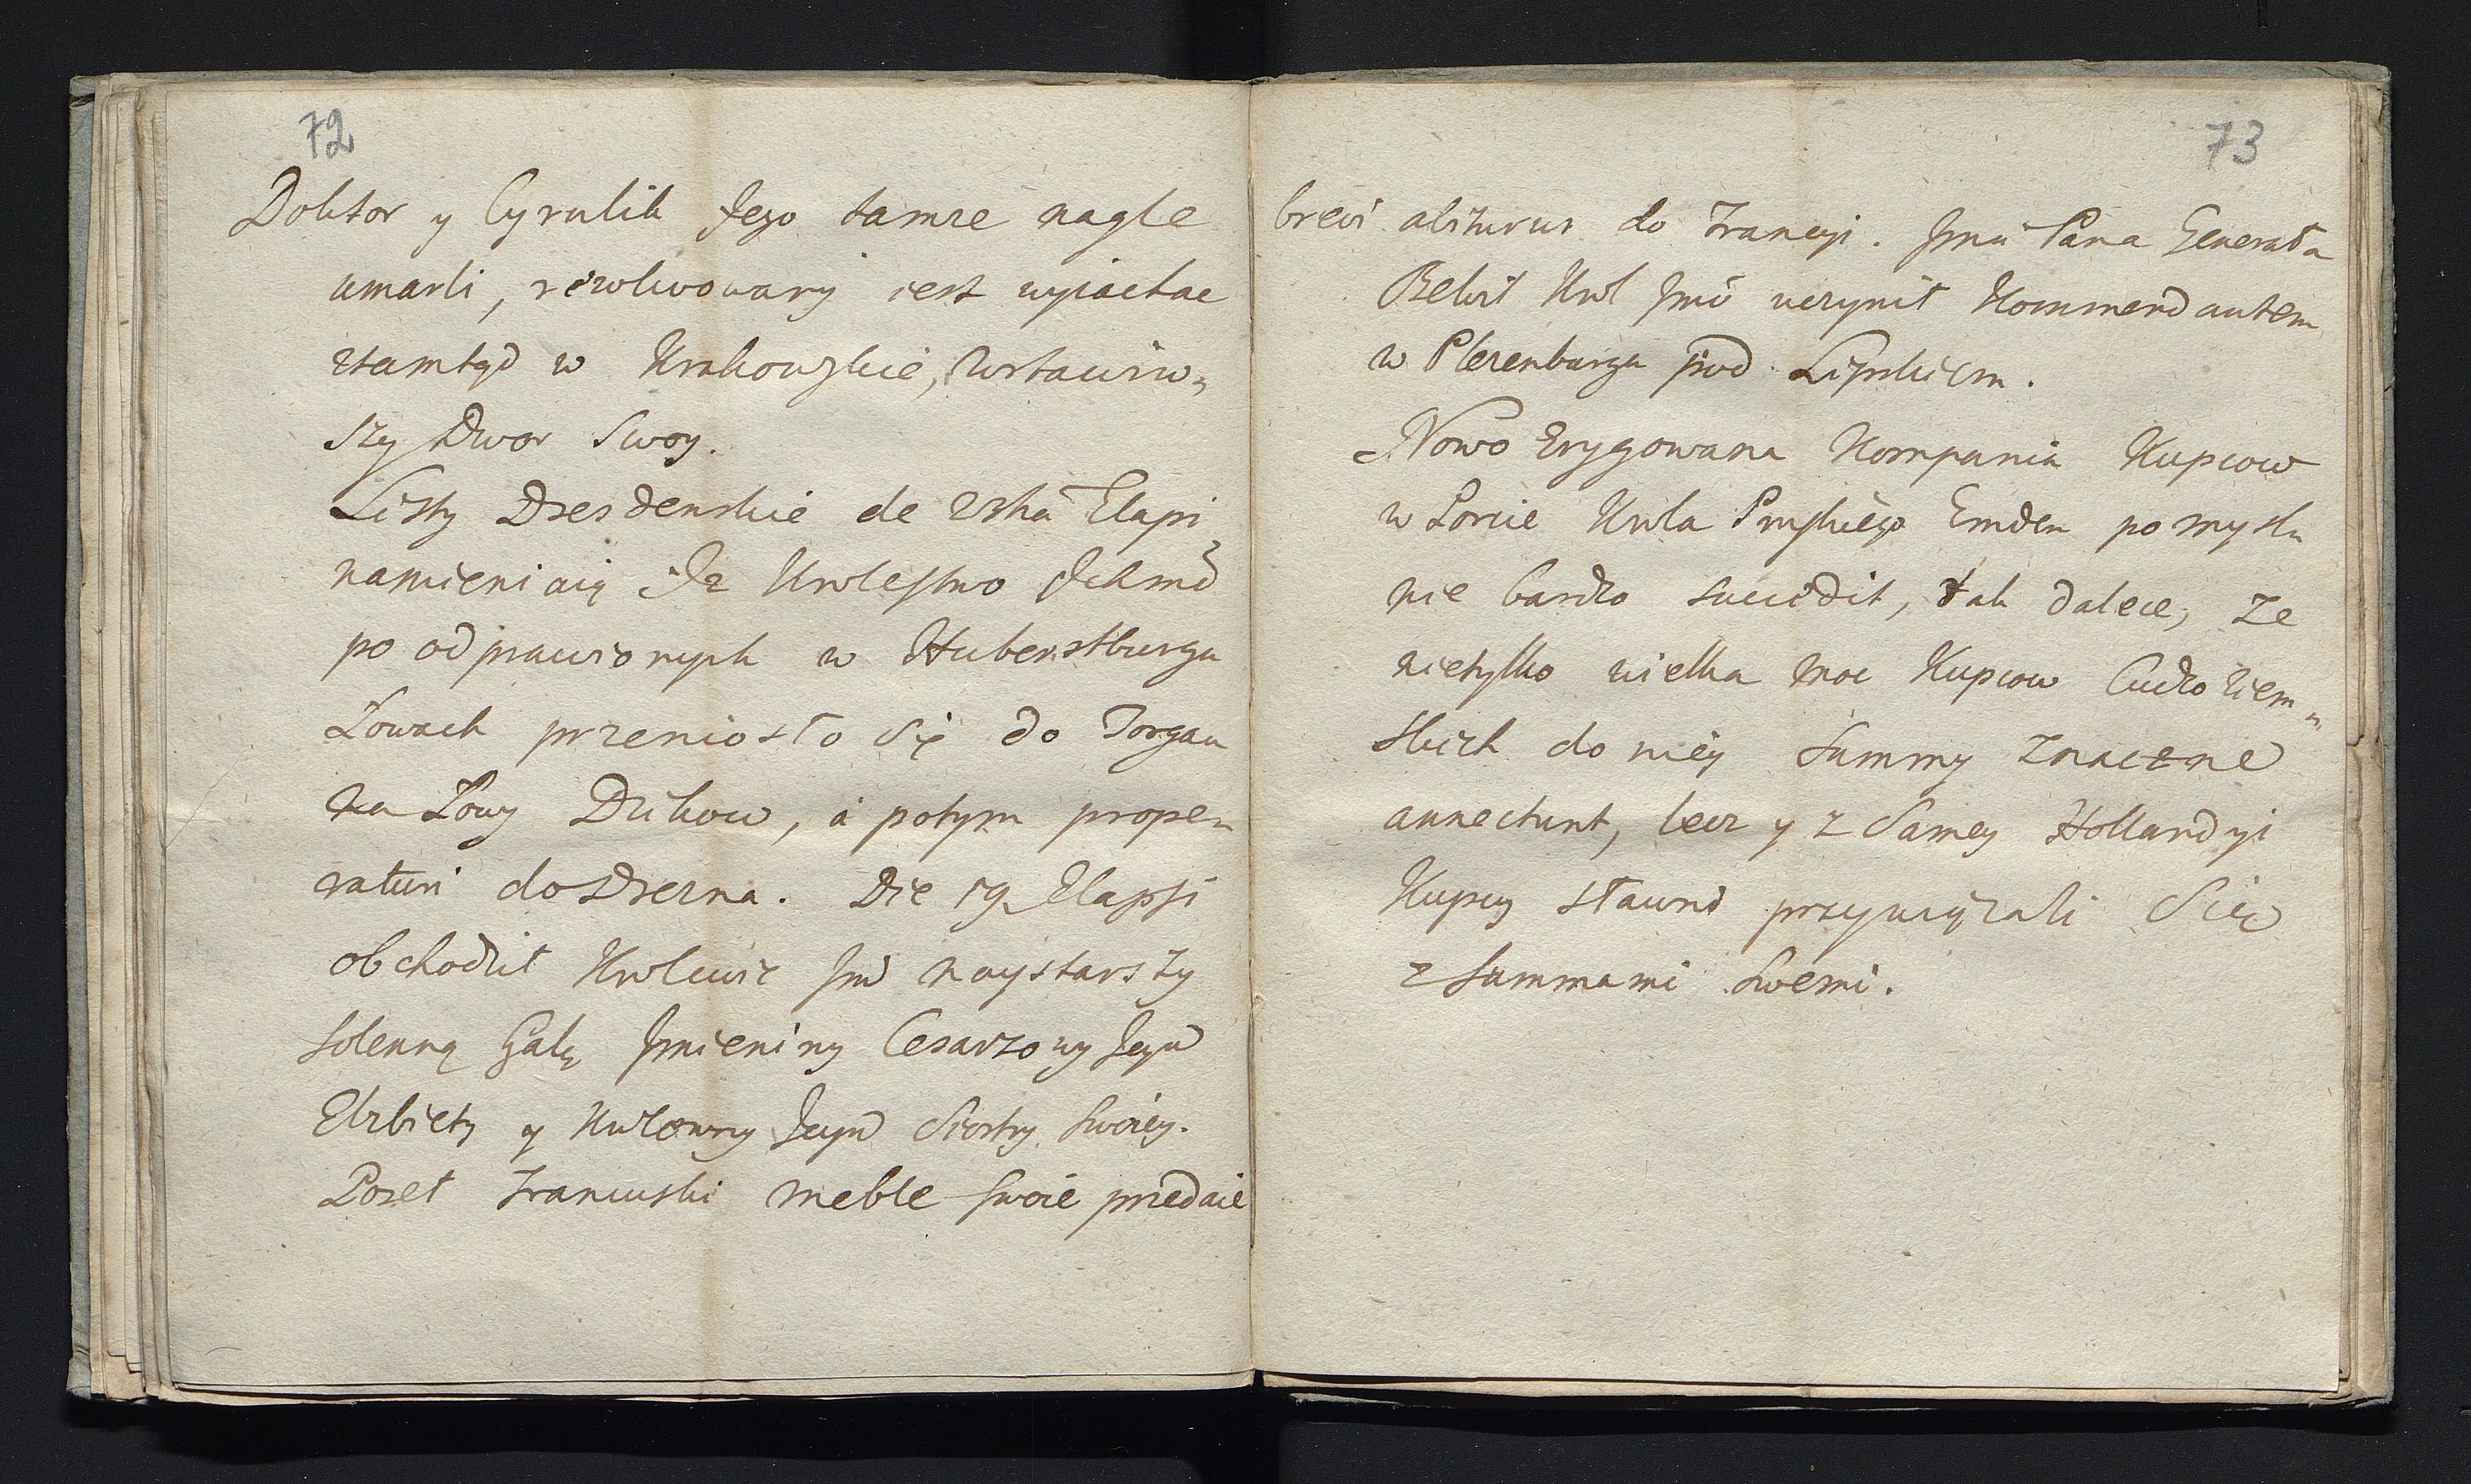 72
Doktor y Cyrulik Jego tamże nagle
umarli, rezolwowany iest wyiachac
ztamtąd w Krakowskie, zostawiw„
szy Dwor Swoy.
Listy Drezdenskie de 23tia Elapsi
namieniaią Jż Krolestwo Ichmć
po odprawionych w Huberstburgu
Łowach przeniosło Się do Torgau
na Łowy Dzikow, a potym prope„
raturi do Drezna. Die 19 Elapsi
obchodził Krolewic Jmć naystarszy
Solenną Galą Jmieniny Cesarzowy Jeymć
Elżbiety y Krolowny Jeymć Siostry Swoiey.
Poseł Francuski meble Swoie przedaie
73
brevi abiturus do Francyi. Jmći Pana Generała
Krol Jmć uczynił Kommendantem
w Plezenburgu pod Lipskiem.
Nowo Erygowana Kompania Kupcow
w Porcie Krola Pruskiego Emden po mysłu
nie bardzo succedit, tak dalece, że
nietylko wielka moc Kupcow Cudzoziem„
skich do niey Summy znaczne
annectunt, lecz y z Samey Hollandyi
Kupcy sławni przywiązali Się
z Summami Swemi.